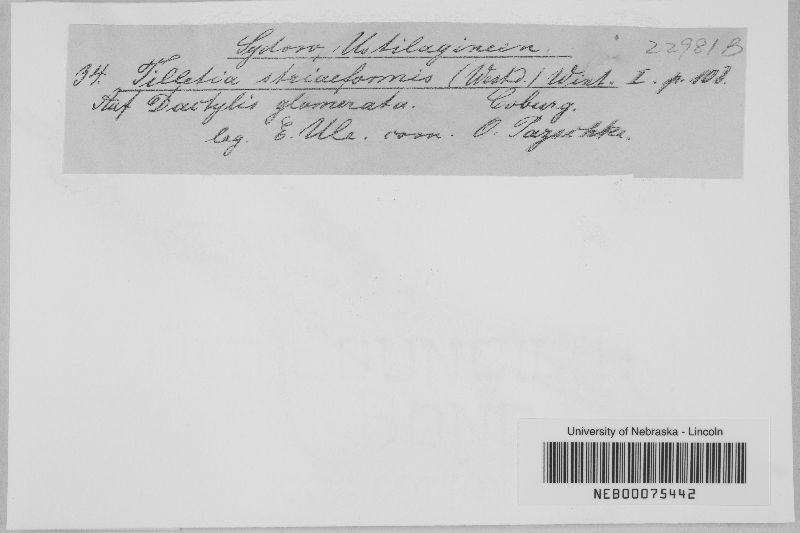 Sydow, Ustilagineen. 22981B
34. Tilletia striaeformis (Westd.) Wint. I. p. 108.
Auf Dactylis glomerata. Coburg.
leg. E. Ule. com. O. Pazschke.
University of Nebraska - Lincoln
NEB00075442